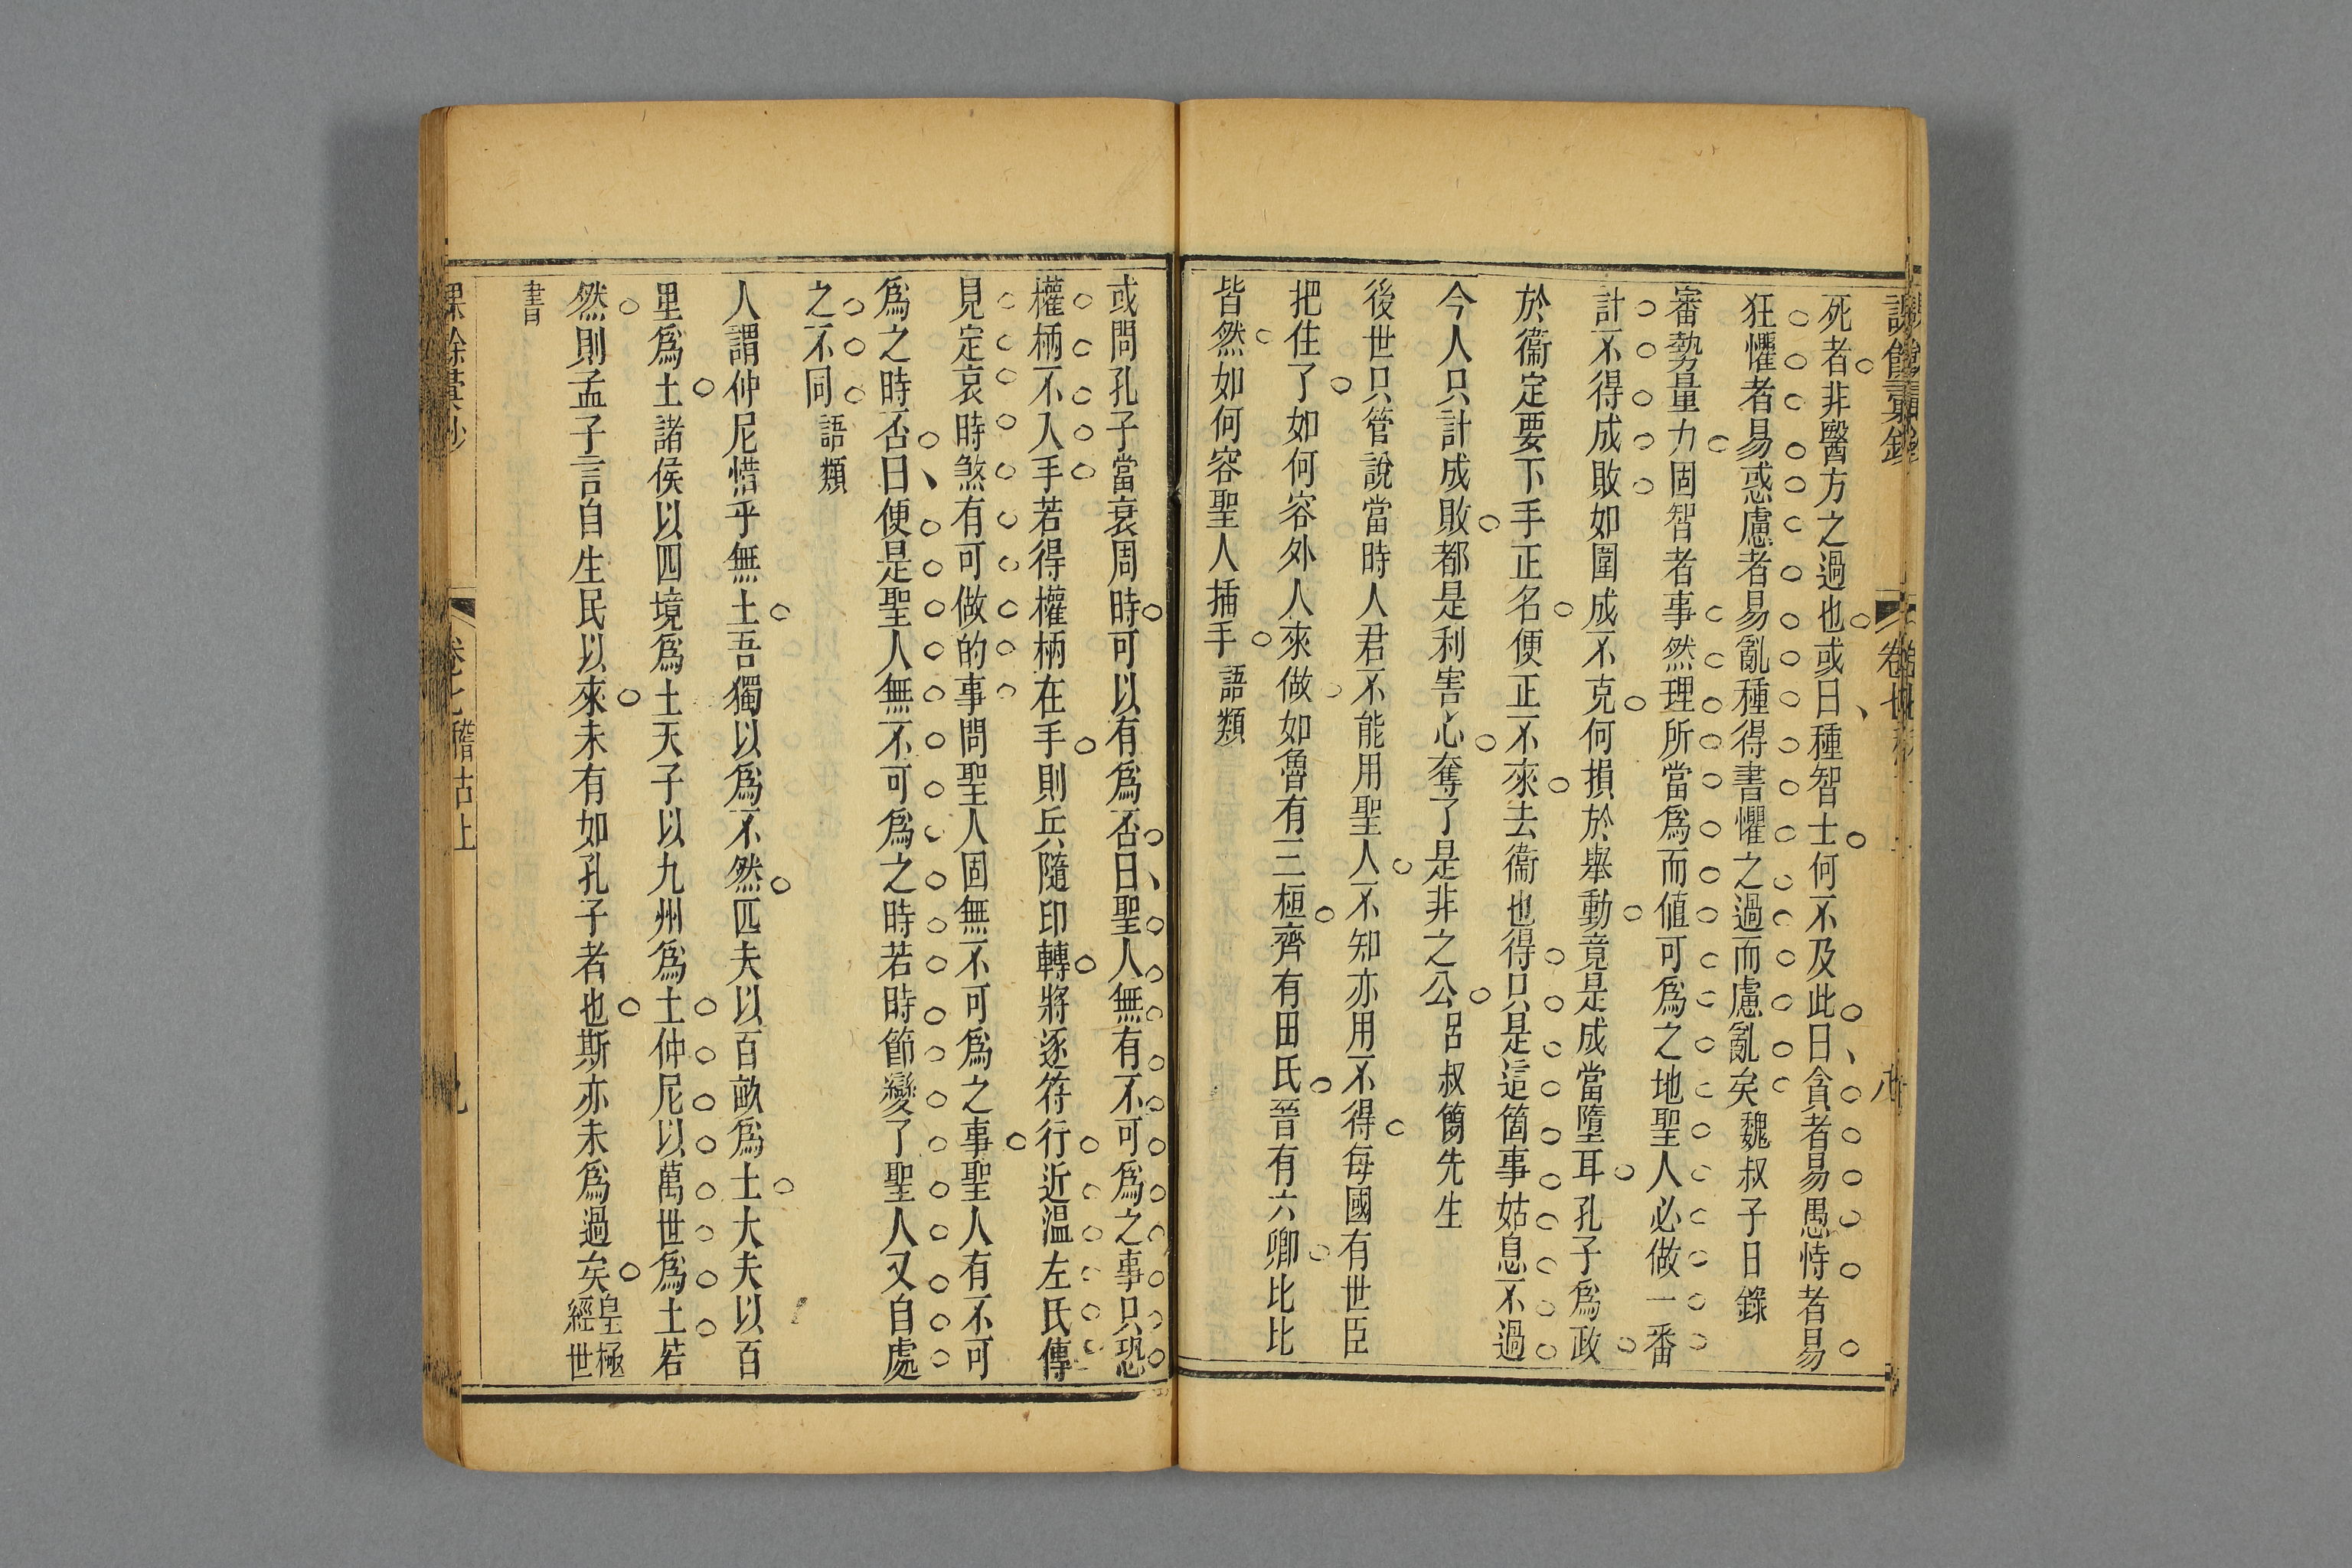 死者非醫方之過也或曰種智士何不及此曰貪者易愚恃者易
狂懼者易惑慮者易亂種得書懼之過而慮亂矣 魏叔子日錄
審勢量力固智者事然理所當為而値可為之地聖人必做一番
計不得成敗如圍成不克何損於舉動竟是成當墮耳孔子為政
於衞定要下手正名便正不來去衞也得只是這箇事姑息不過
今人只計成敗都是利害心奪了是非之公 呂叔簡先生
後世只管說當時人君不能用聖人不知亦用不得每國有世臣
把住了如何容外人來做如魯有三桓齊有田氏晉有六卿比比
皆然如何容聖人揷手 語類
或問孔子當衰周時可以有為否曰聖人無有不可為之事只恐
權柄不入手若得權柄在手則兵隨印轉將逐符行近溫左氏傳
見定哀時煞有可做的事問聖人固無不可為之事聖人有不可
為之時否曰便是聖人無不可為之時若時節變了聖人又自處
之不同 語類
人謂仲尼惜乎無土吾獨以為不然匹夫以百畝為土大夫以百
里為土諸侯以四境為土天子以九州為土仲尼以萬世為土若
然則孟子言自生民以來未有如孔子者也斯亦未為過矣 皇極經世
書
卷七 稽古上